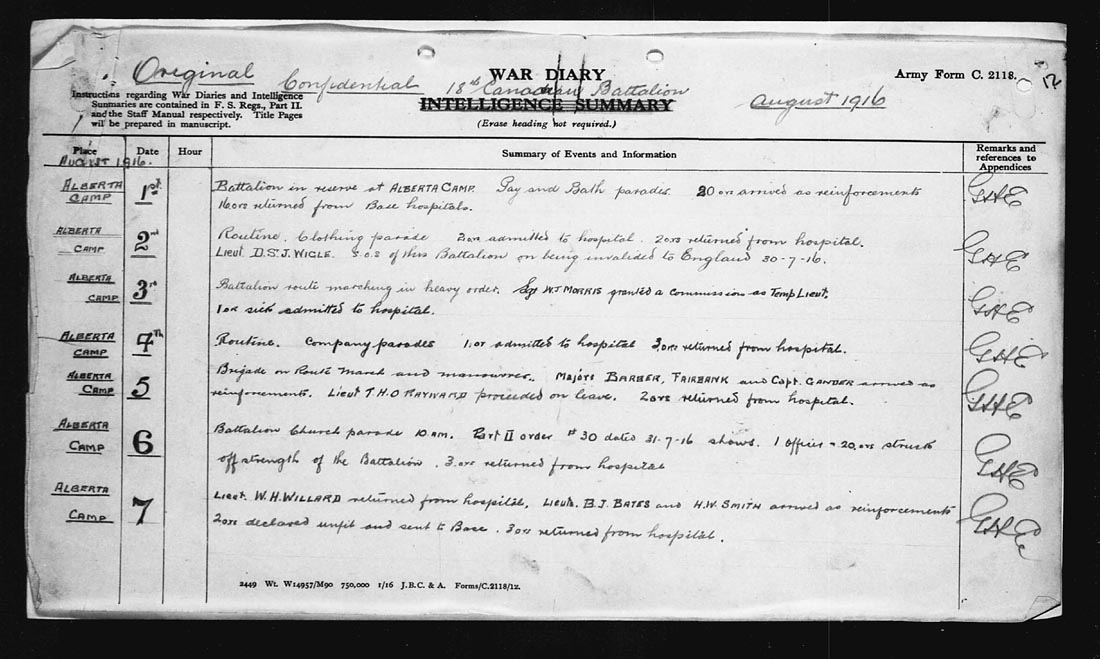 Original
Confidential
WAR DIARY
18th Canadian Battalion
INTELLIGENCE SUMMARY
(Erase heading not required.)
Army Form C. 2118.
12
August 1916
Instructions regarding War Diaries and Intelligence
Summaries are contained in F. S. Regs., Part II.
and the Staff Manual respectively. Title Pages
will be prepared in manuscript.
Place
Date
Hour
Summary of Events and Information
Remarks and
references to
Appendices
AUGUST 1916.
ALBERTA
CAMP
1st
Battalion in reserve at ALBERTA CAMP. Pay and Bath parades. 20 ors arrived as reinforcements
16 ors returned from Base hospitals.
GHE
ALBERTA
CAMP
2nd
Routine. Clothing parade 2 ors admitted to hospital. 2 ors returned from hospital.
Lieut. D.S.J. WIGLE. S.O.S of this Battalion on being invalided to England 30-7-16.
GHE
ALBERTA
CAMP
3r
Battalion route marching in heavy order. Sgt W.J MORRIS granted a commission as Temp Lieut.
1 or sick admitted to hospital.
GHE
ALBERTA
CAMP
4Th
Routine. Company parades 1 or admitted to hospital 3 ors returned from hospital.
GHE
ALBERTA
CAMP
5
Brigade on Route march and manouvres. Majors BARBER, FAIRBANK and Capt. GANDER arrived as
reinforcements. Lieut T.H.O RAYWARD proceeded on leave. 2 ors returned from hospital.
GHE
ALBERTA
CAMP
6
Battalion Church parade 10 am. Part II order # 30 dated 31-7-16 shows. 1 officer - 20 ors struck
off strength of the Battalion. 3 ors returned from hospital
GHE
ALBERTA
CAMP
7
Lieut. W.H. WILLARD returned from hospital. Lieuts. B.J. BATES and H.W. SMITH arrived as reinforcements
2 ors declared unfit and sent to Base. 3 ors returned from hospital.
GHE
2449 Wt. W14957/M90 750,000 1/16 J.B.C. & A. Forms/C.2118/12.